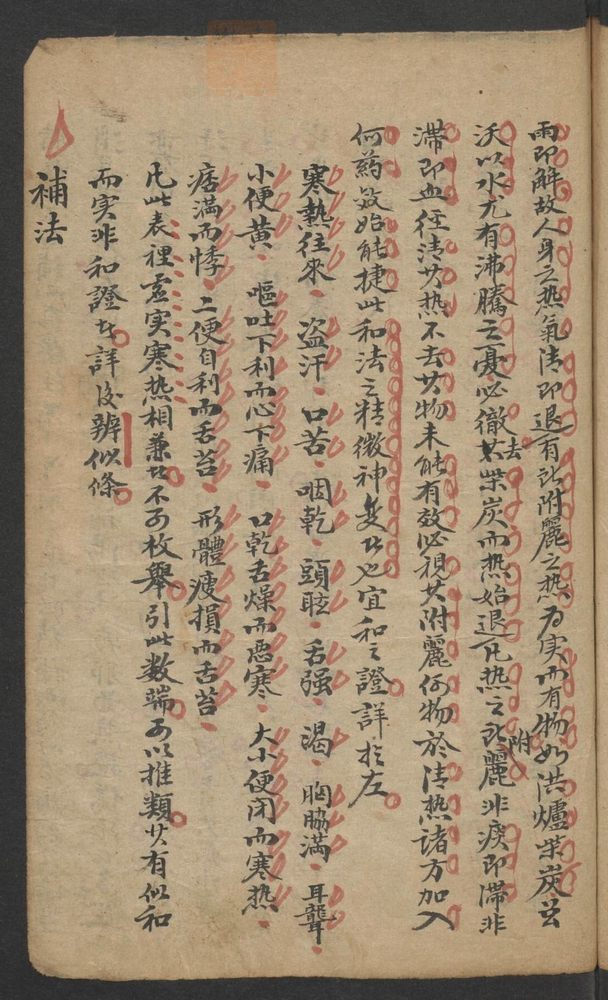 雨即解故人身之热氣清即退有所附麗之热为实而有物如洪爐柴炭並
沃以水尤有沸騰之憂必徹去其柴炭而热始退凡热之所附麗非痰即滯非
滯即血徒清其热不去其物未能有效必視其附麗何物於清热諸方加入
何药效始能捷此和法之精微神变处也宜和之證詳於左
寒熱往來 盗汗 口苦 咽乾 頭眩 舌强 渴 胸脇滿 耳聾
小便黄 嘔吐下利而心下痛 口乾舌燥而悪寒 大小便闭而寒热
痞滿而悸 二便自利而舌苔 形體瘦損而舌苔
凡此表裡虛实寒热相兼者不可枚舉引此数端可以推類其有似和
而实非和證者詳後辨似條
補法